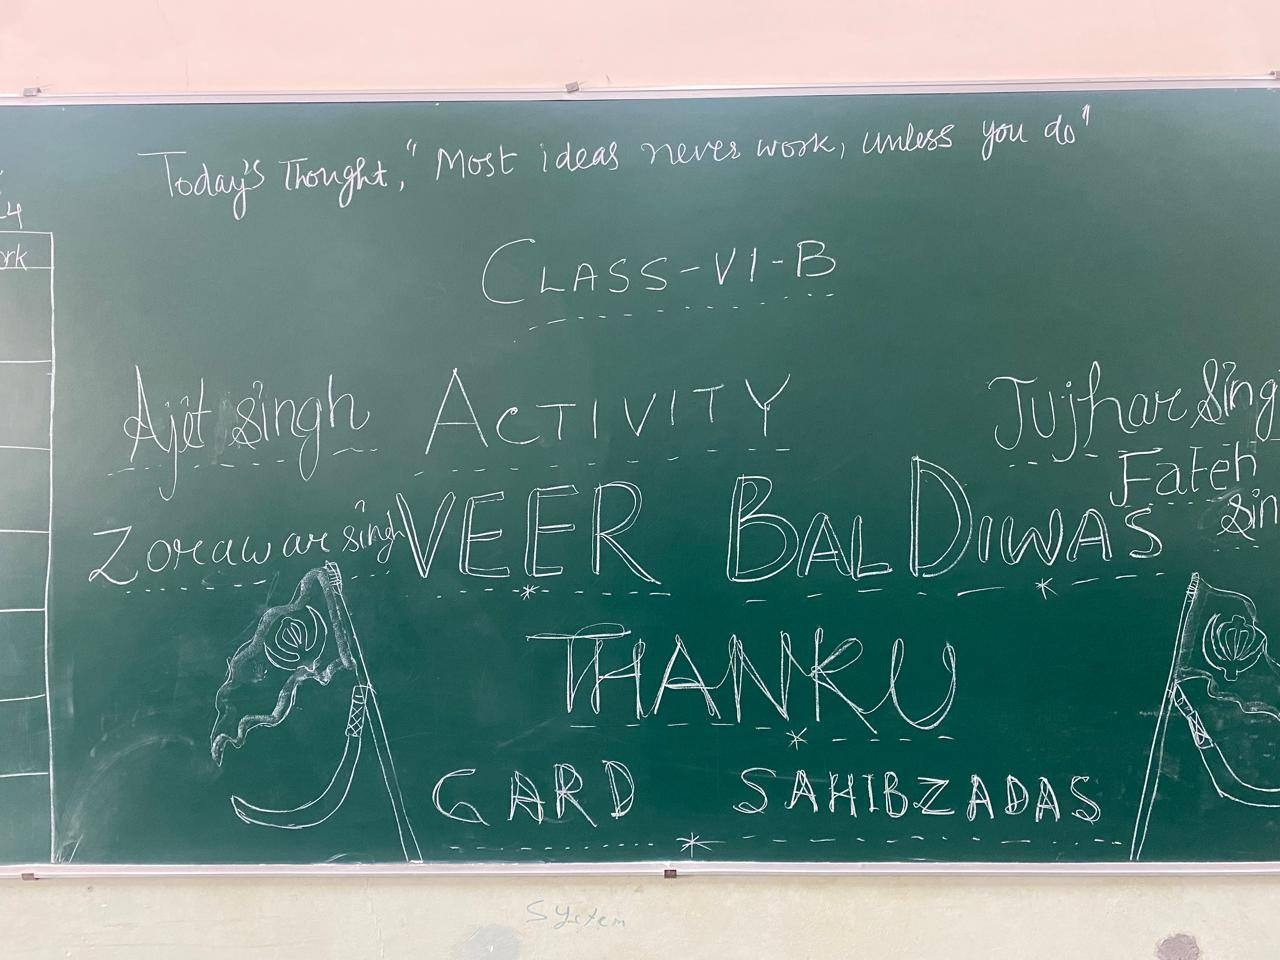 Today's Thought, "Most ideas never work, unless you do"
-4
ork
CLASS-VI-B
Ajit Singh ACTIVITY Jujhar Sing
Fateh
Zorawar singh VEER BAL DIWAS Sin
THANKU
CARD SAHIBZADAS
System